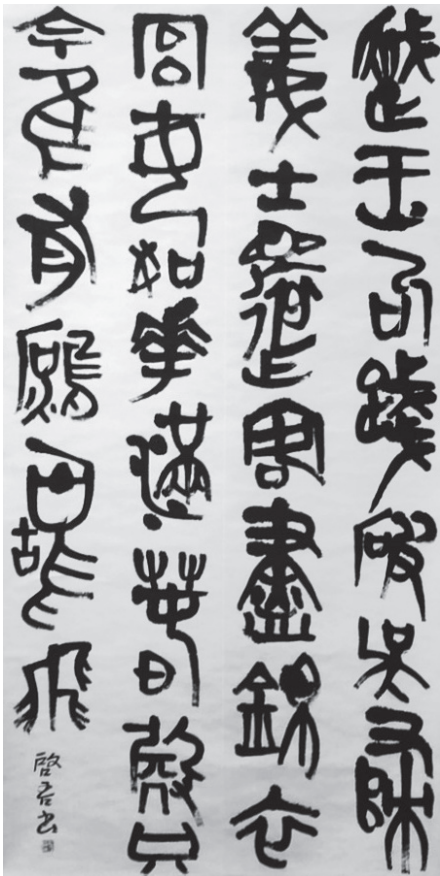 越王句踐破吳歸
義士還盡錦衣
宮女如華滿春殿只
今隹有鷓鴣飛
啓書